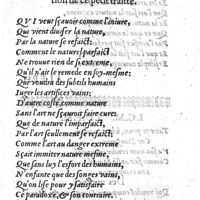 tion de ce petit traitté.
QVI veut sçauoir comme l'iniure,
Que vient d'vser la nature,
Par la nature se refaict:
Comment le naturel parfaict
Ne trouue rien de si extreme,
Qu'il n'ait le remede en soy-mesme:
Que voudra des subtils humains
Iuger les artifices vains:
D'autre costé comme nature
Sans l'art ne sçauroit faire cure,
Que de nature l'imparfaict,
Par l'art seullement se refaict:
Comme l'art au danger extreme
Sçait imiter nature mesme,
Que sans luy l'esfort des humains,
N'enfante que des songes vains,
Qu'on lise pour y satisfaire
Ce paradoxe, & son contraire.